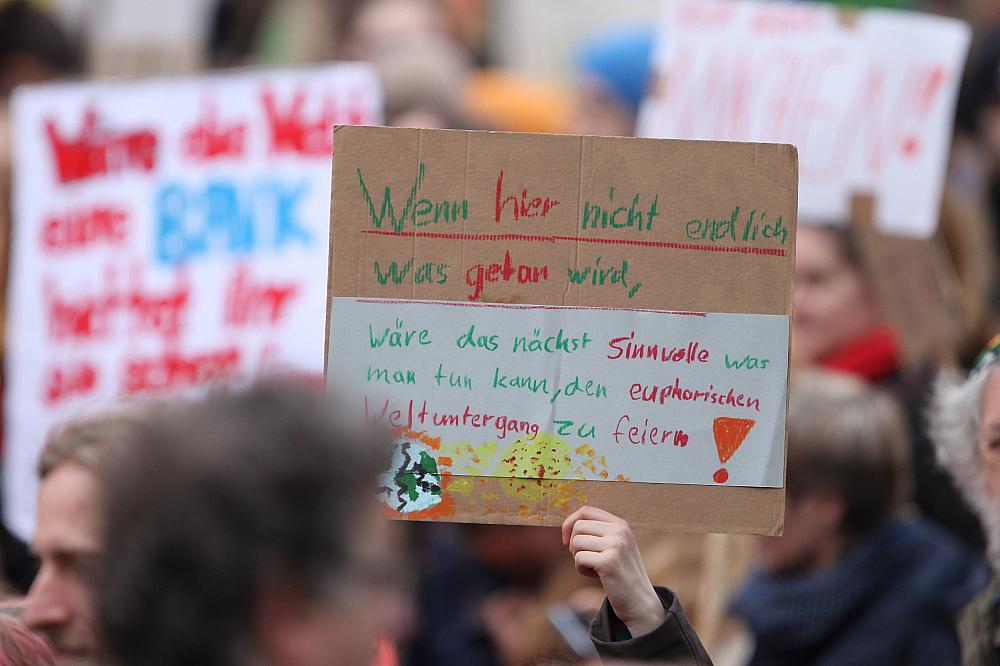 Wäre die Welt
eine BANK
hättet ihr
sie schon
Wenn hier nicht endlich
was getan wird,
wäre das nächst Sinnvolle was
man tun kann, den euphorischen
Weltuntergang zu feiern!